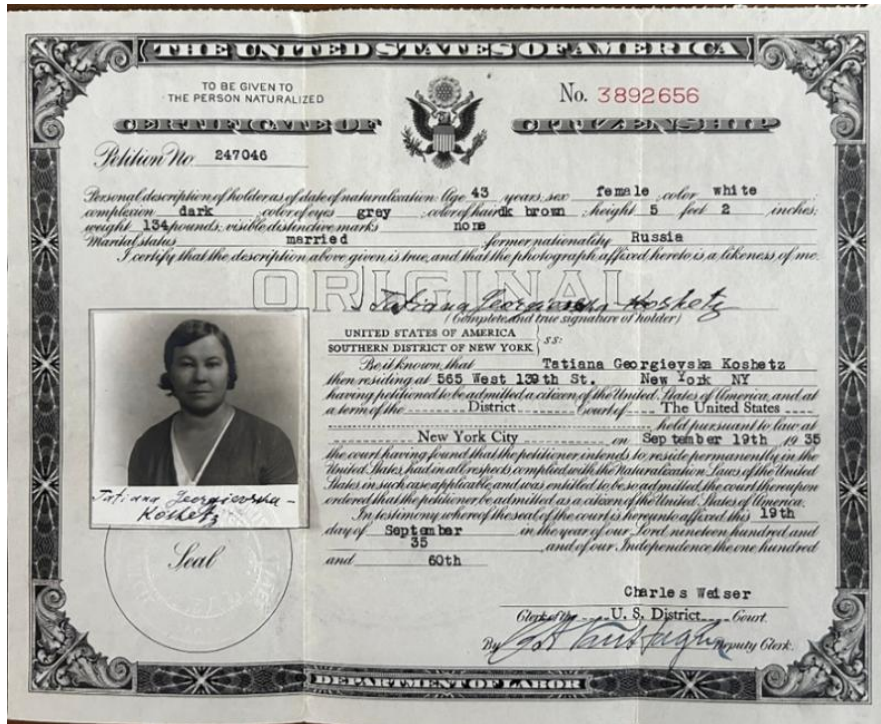 THE UNITED STATES OF AMERICA
TO BE GIVEN TO
THE PERSON NATURALIZED
No. 3892656
CERTIFICATE OF CITIZENSHIP
Petition No 247046
Personal description of holder as of date of naturalization: Age 43 years; sex female; color white
complexion dark color of eyes grey color of hair dk brown; height 5 feet 2 inches;
weight 134 pounds; visible distinctive marks none
Marital status married former nationality Russia
I certify that the description above given is true, and that the photograph affixed hereto is a likeness of me.
ORIGINAL
Tatiana Georgievska-Koshetz
(Complete and true signature of holder)
UNITED STATES OF AMERICA
SOUTHERN DISTRICT OF NEW YORK } ss:
Be it known, that Tatiana Georgievska Koshetz
then residing at 565 West 139th St. New York NY
having petitioned to be admitted a citizen of the United States of America, and at
a term of the District Court of The United States
held pursuant to law at
New York City on September 19th, 1935
the court having found that the petitioner intends to reside permanently in the
United States, had in all respects complied with the Naturalization Laws of the United
States in such case applicable, and was entitled to be so admitted, the court thereupon
ordered that the petitioner be admitted as a citizen of the United States of America.
In testimony whereof the seal of the court is hereunto affixed this 19th
day of September in the year of our Lord nineteen hundred and
35 and of our Independence the one hundred
and 60th
Tatiana Georgievska-
Koshetz
Seal
Charles Weiser
Clerk of the U. S. District Court.
By Deputy Clerk.
DEPARTMENT OF LABOR